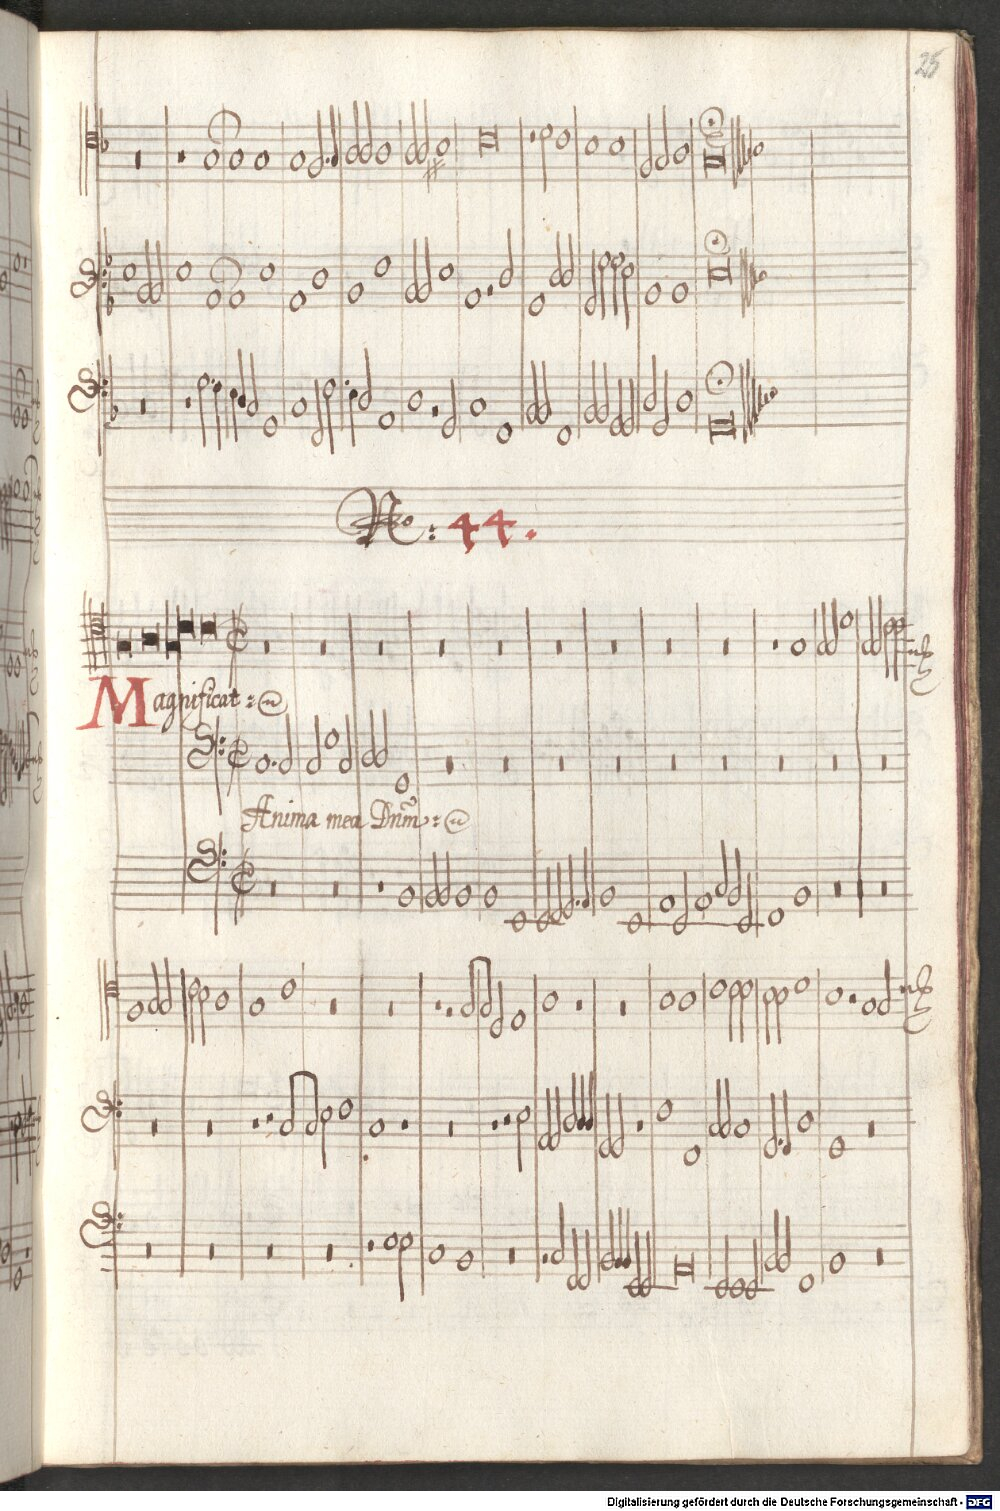 25
No: 44.
Magnificat:
Anima mea Dnm:
Digitalisierung gefördert durch die Deutsche Forschungsgemeinschaft - DFG